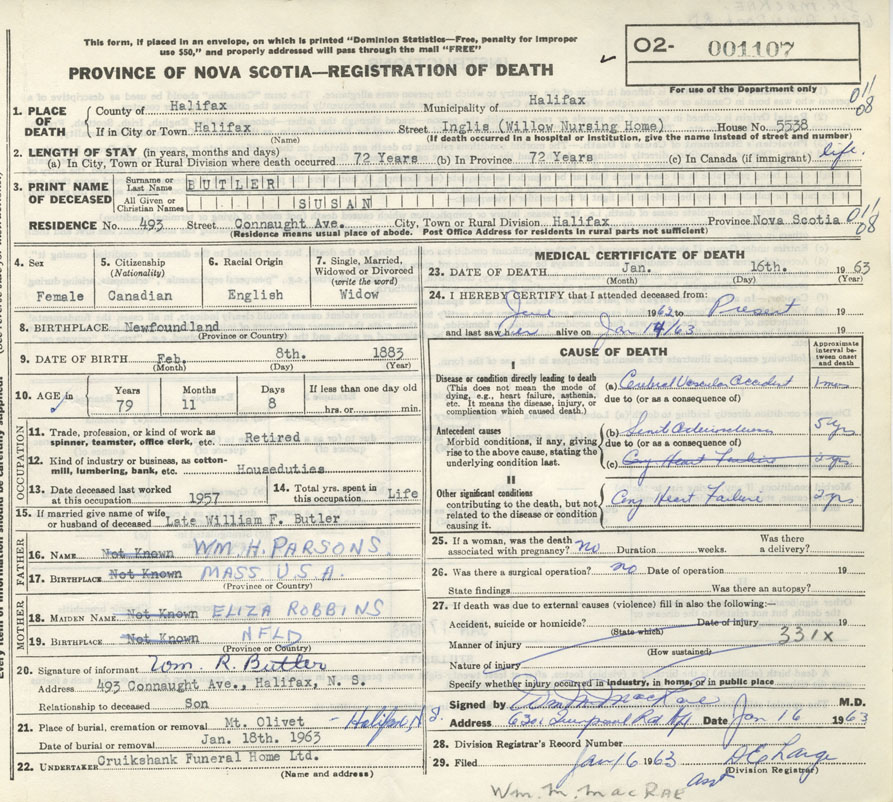 This form, if placed in an envelope, on which is printed "Dominion Statistics—Free, penalty for improper
use $50," and properly addressed will pass through the mail "FREE"
PROVINCE OF NOVA SCOTIA—REGISTRATION OF DEATH
O2- 001107
For use of the Department only
1. PLACE OF DEATH
County of Halifax Municipality of Halifax 011/08
If in City or Town Halifax Street Inglis (Willow Nursing Home) House No. 5538
(Name) (If death occurred in a hospital or Institution, give the name instead of street and number)
2. LENGTH OF STAY (in years, months and days)
(a) In City, Town or Rural Division where death occurred 72 Years (b) In Province 72 Years (c) In Canada (if immigrant) life.
3. PRINT NAME OF DECEASED
Surname or Last Name BUTLER
All Given or Christian Names SUSAN
RESIDENCE No. 493 Street Connaught Ave. City, Town or Rural Division Halifax Province Nova Scotia 011/08
(Residence means usual place of abode. Post Office Address for residents in rural parts not sufficient)
4. Sex
Female
5. Citizenship
(Nationality)
Canadian
6. Racial Origin
English
7. Single, Married,
Widowed or Divorced
(write the word)
Widow
8. BIRTHPLACE Newfoundland
(Province or Country)
9. DATE OF BIRTH Feb. 8th. 1883
(Month) (Day) (Year)
10. AGE in
Years Months Days If less than one day old
79 11 8 hrs. or min.
OCCUPATION
11. Trade, profession, or kind of work as
spinner, teamster, office clerk, etc. Retired
12. Kind of industry or business, as cotton-
mill, lumbering, bank, etc. Houseduties
13. Date deceased last worked
at this occupation 1957
14. Total yrs. spent in
this occupation Life
15. If married give name of wife
or husband of deceased Late William F. Butler
FATHER
16. NAME Not Known WM. H. PARSONS
17. BIRTHPLACE Not Known MASS U.S.A.
(Province or Country)
MOTHER
18. MAIDEN NAME Not Known ELIZA ROBBINS
19. BIRTHPLACE Not Known NFLD
(Province or Country)
20. Signature of informant Wm. R. Butler
Address 493 Connaught Ave., Halifax, N. S.
Relationship to deceased Son
21. Place of burial, cremation or removal Mt. Olivet - Halifax N.S.
Date of burial or removal Jan. 18th. 1963
22. UNDERTAKER Cruikshank Funeral Home Ltd.
(Name and address)
MEDICAL CERTIFICATE OF DEATH
23. DATE OF DEATH Jan. 16th. 1963
(Month) (Day) (Year)
24. I HEREBY CERTIFY that I attended deceased from:
June 1962 to Present 19
and last saw her alive on Jan 14/63 19
CAUSE OF DEATH
Approximate
interval between
onset and death
I
Disease or condition directly leading to death
(This does not mean the mode of
dying, e.g., heart failure, asthenia,
etc. It means the disease, injury, or
complication which caused death.)
(a) Cerebral Vascular Accident
due to (or as a consequence of)
Antecedent causes
Morbid conditions, if any, giving
rise to the above cause, stating the
underlying condition last.
(b)
due to (or as a consequence of)
5 yrs
(c) Cong Heart Failure 2 yrs
II
Other significant conditions
contributing to the death, but not
related to the disease or condition
causing it.
Cong Heart Failure 2 yrs
25. If a woman, was the death
associated with pregnancy? no Duration weeks. Was there
a delivery?
26. Was there a surgical operation? no Date of operation 19
State findings Was there an autopsy?
27. If death was due to external causes (violence) fill in also the following:—
Accident, suicide or homicide? Date of injury 19
(State which)
Manner of injury 331X
(How sustained)
Nature of injury
Specify whether injury occurred in industry, in home, or in public place
Signed by Wm M MacRae M.D.
Address Date Jan 16 1963
28. Division Registrar's Record Number
29. Filed Jan 16 1963 D E Large
(Division Registrar)
asst
Wm. M. MacRAE